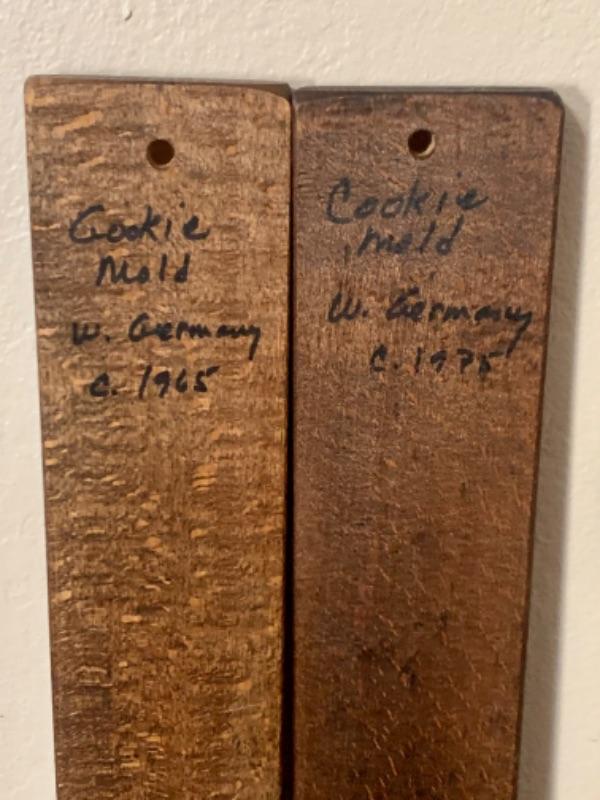 Cookie
Mold
W. Germany
c. 1965
Cookie
Mold
W. Germany
c. 1975